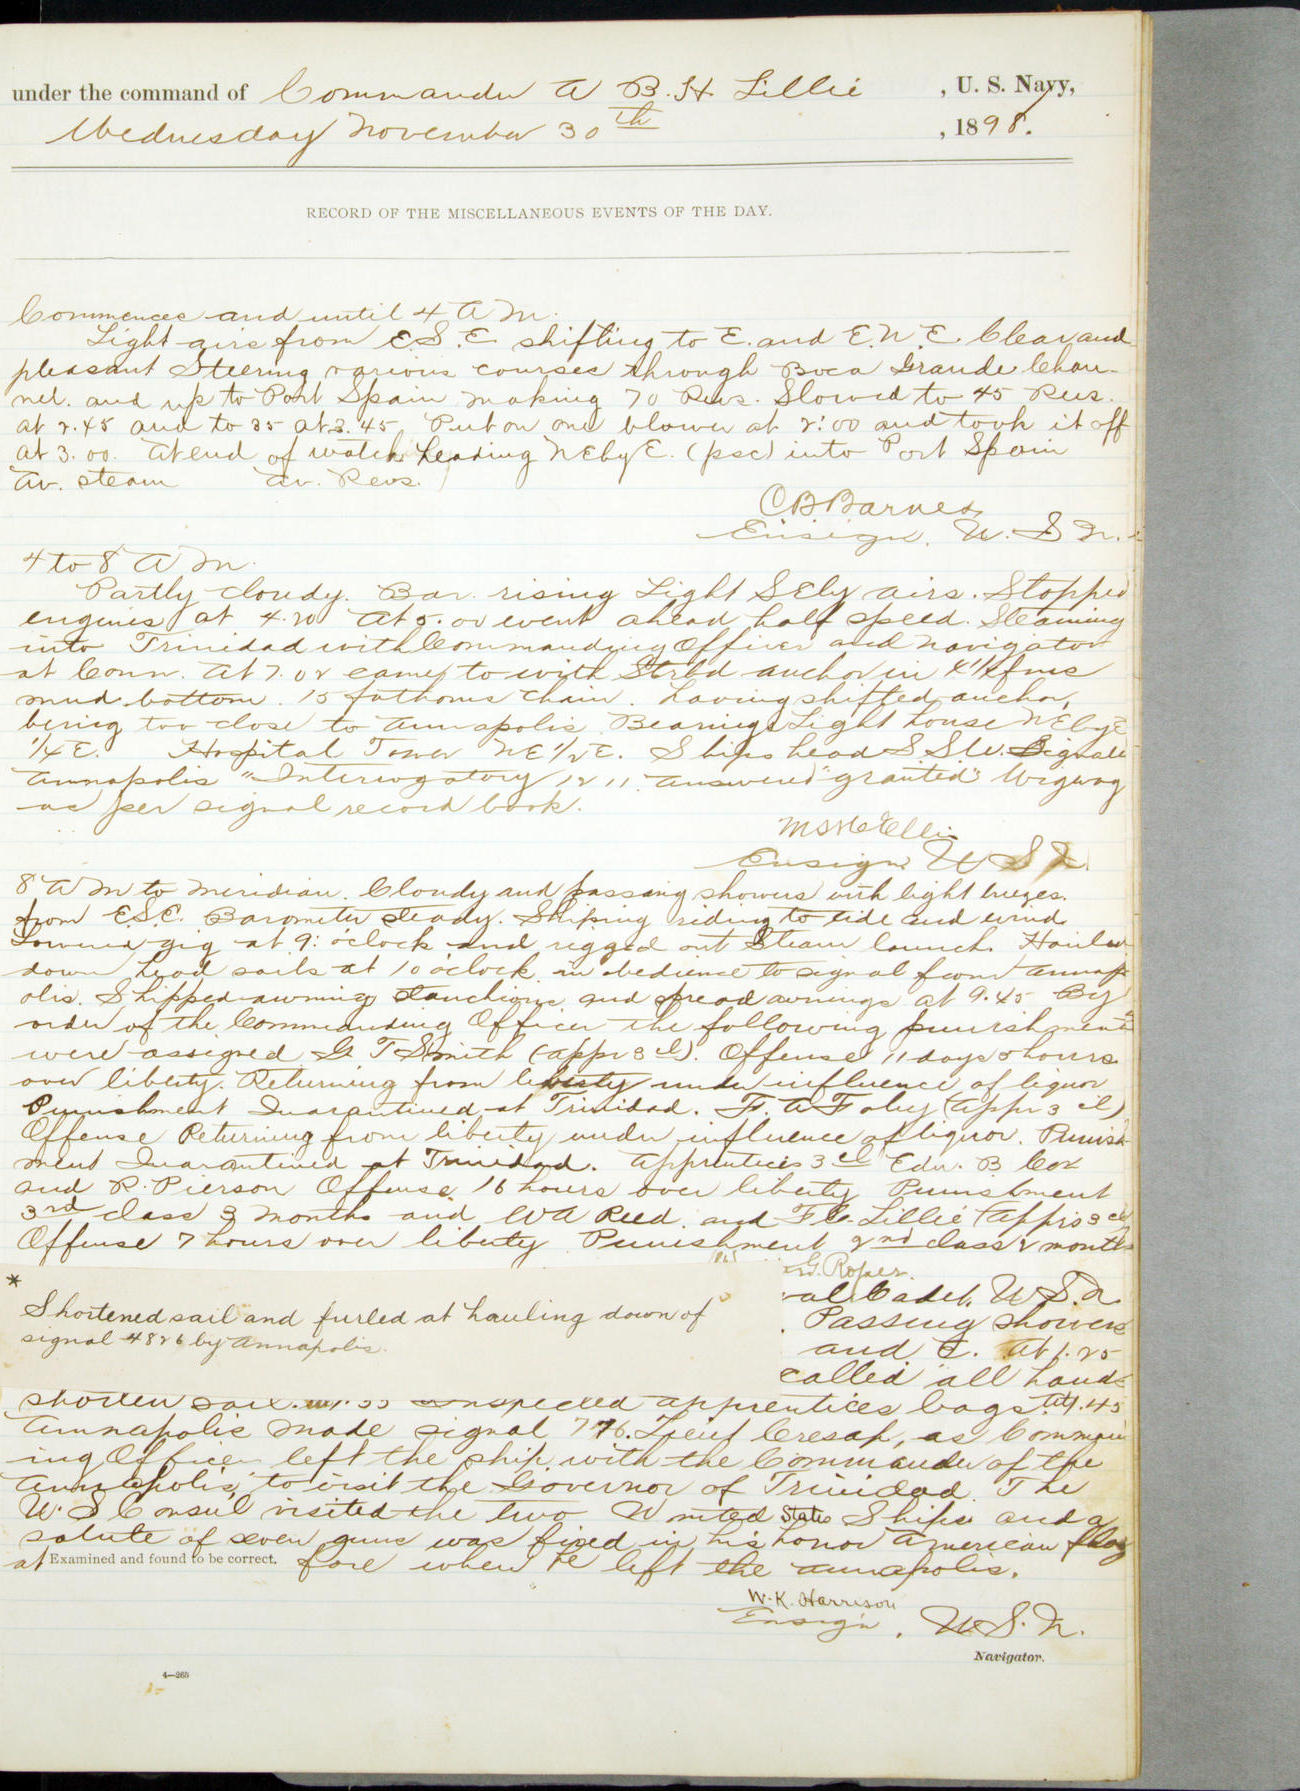 under the command of Commander A B. H. Lillie , U. S. Navy,
Wednesday November 30th , 1898.
RECORD OF THE MISCELLANEOUS EVENTS OF THE DAY.
Commences and until 4 A M.
Light airs from E S. E shifting to E. and E. N. E. Clear and
pleasant Steering various courses through Boca Grande Chan-
nel. and up to Port Spain making 70 Revs. Slowed to 45 Revs.
at 2.45 and to 35 at 3.45. Put on one blower at 2:00 and took it off
at 3.00. At end of watch heading NEbyE. (psc) into Port Spain
Av. steam Av. Revs.
C B Barnes
Ensign. U. S N.
4 to 8 A M.
Partly cloudy. Bar. rising Light SEly airs. Stopped
engines at 4.20 At 5.00 went ahead half speed. Steaming
into Trinidad with Commanding Officer and Navigator
at Conn. At 7.02 came to with Strbd anchor in 4 1/2 fms
mud bottom. 15 fathoms chain. having shifted anchor,
being too close to Annapolis. Bearings Light house NEbyE
1/4 E. Hospital Tower NE 1/2 E. Ships head S SW. Signals
Annapolis "Interrogatory 1211. answered "granted" Wigwag
as per signal record book.
Ensign U S N.
8 A M to Meridian. Cloudy and passing showers with light breezes.
from E.S.E. Barometer steady. Shiping riding to tide and wind.
Lowered gig at 9: o'clock and rigged out Steam launch. Hauled
down head sails at 10 o'clock in obedience to signal from Annap-
olis. Shipped awning stanchions and spread awnings at 9.45 By
order of the Commanding Officer the following punishments
were assigned G T Smith (appr 3 cl). Offense 11 days 5 hours
over liberty. Returning from liberty under influence of liquor
Punishment Quarantined at Trinidad. F. A Foley (appr 3 cl)
Offense Returning from liberty under influence of liquor. Punish-
ment Quarantined at Trinidad. Apprentices 3 cl Edw. B Cox
and R. Pierson Offense. 16 hours over liberty Punishment
3rd class 3 months and W A Reed. and F C. Lillie (apprs 3 cl)
Offense 7 hours over liberty Punishment 2nd class 2 months
G. Roper.
*
val Cadet, U S. N
Shortened sail and furled at hauling down of
signal 4826 by Annapolis.
Passing showers
and E. At 1.25
called all hands
shorten sail. Inspected apprentices bags. At 1.45
Annapolis made signal 776. Lieut Cresap, as Command-
ing Officer left the ship, with the Commander of the
Annapolis, to visit the Governor of Trinidad. The
U. S Consul visited the two United States Ships and a
salute of seven guns was fired in his honor American flag
at Examined and found to be correct. fore when he left the Annapolis.
W. K. Harrison
Ensign , U. S. N.
Navigator.
4—265